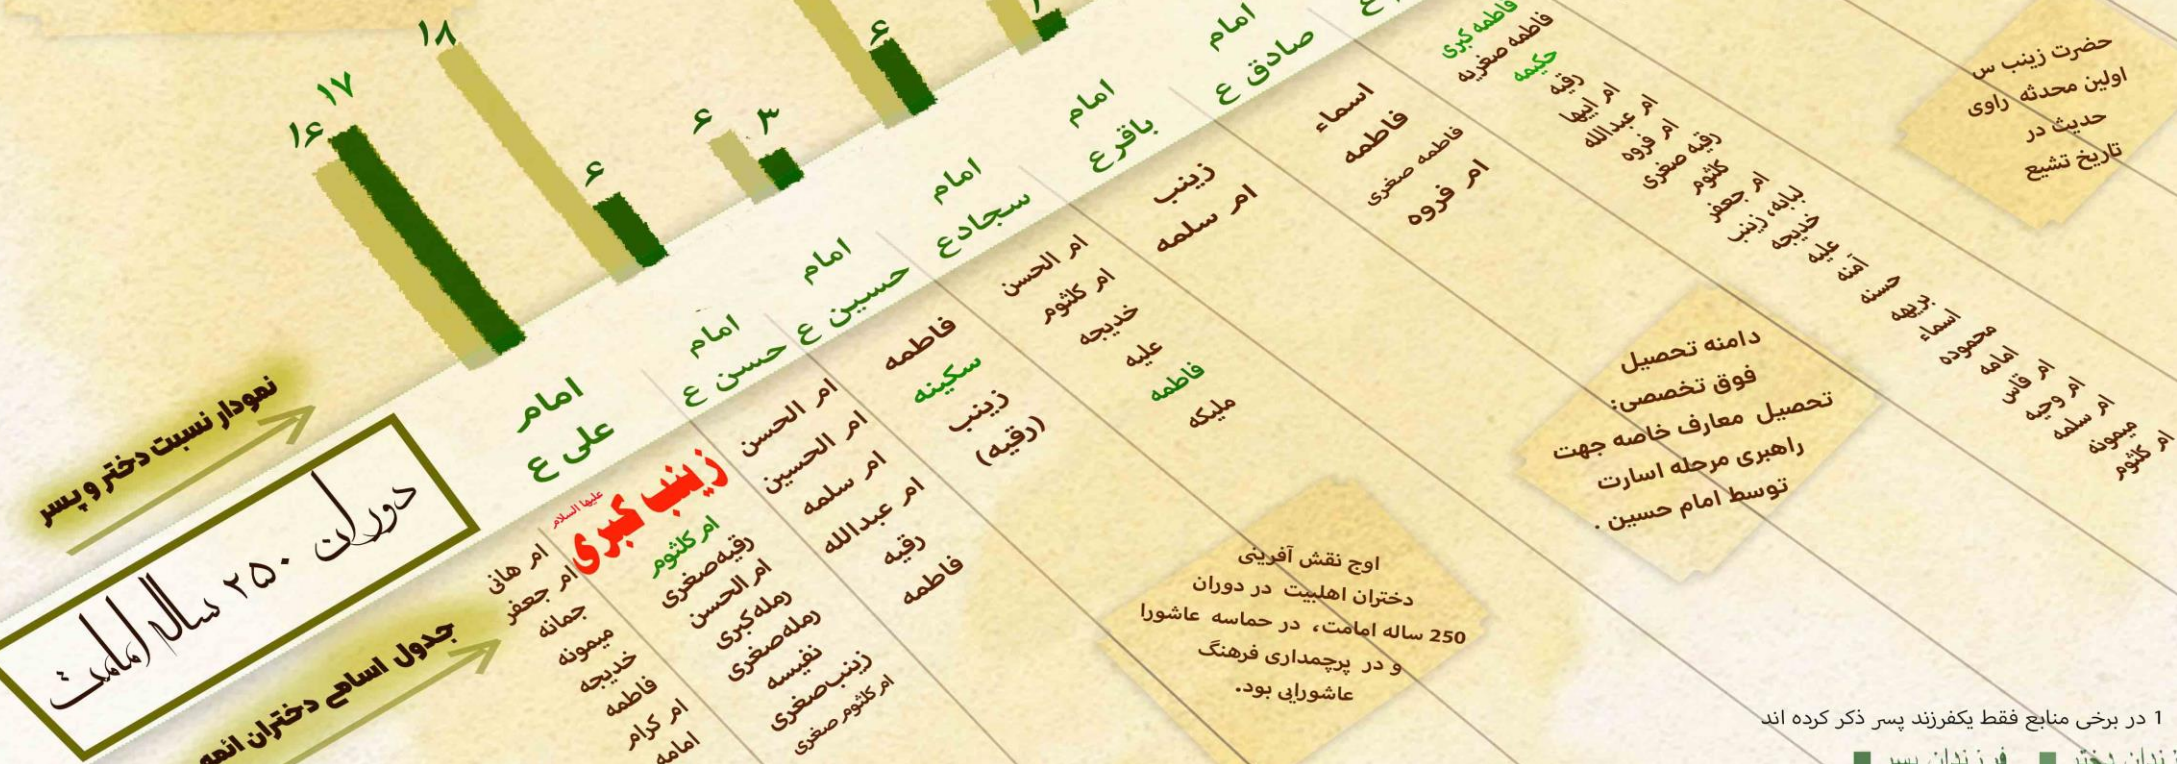 ۱۸
۶
۱۷
۱۶
۶
۶
۳
نمودار نسبت دختر و پسر
دوران ۲۵۰ ساله امامت
جدول اسامی دختران ائمه
امام
علی ع
امام
حسن ع
امام
حسین ع
امام
سجاد ع
امام
باقر ع
امام
صادق ع
زینب کبری
علیها السلام
ام کلثوم
رقیه صغری
ام الحسن
رمله کبری
رمله صغری
نفیسه
زینب صغری
ام کلثوم صغری
ام هانی
ام جعفر
جمانه
میمونه
خدیجه
فاطمه
ام کرام
امامه
ام الحسن
ام الحسین
ام سلمه
ام عبدالله
رقیه
فاطمه
فاطمه
سکینه
زینب
(رقیه)
ام الحسن
ام کلثوم
خدیجه
علیه
فاطمه
ملیکه
زینب
ام سلمه
اسماء
فاطمه
فاطمه صغری
ام فروه
فاطمه کبری
فاطمه صغریه
حکیمه
رقیه
ام ابیها
ام عبدالله
ام فروه
رقیه صغری
کلثوم
ام جعفر
لبابه، زینب
خدیجه
علیه
آمنه
حسنه
بریهه
اسماء
محموده
امامه
ام قاس
ام وحیه
ام سلمه
میمونه
ام کلثوم
حضرت زینب س
اولین محدثه راوی
حدیث در
تاریخ تشیع
دامنه تحصیل
فوق تخصصی:
تحصیل معارف خاصه جهت
راهبری مرحله اسارت
توسط امام حسین .
اوج نقش آفرینی
دختران اهلبیت در دوران
250 ساله امامت، در حماسه عاشورا
و در پرچمداری فرهنگ
عاشورایی بود.
1 در برخی منابع فقط یکفرزند پسر ذکر کرده اند
فرزندان پسر